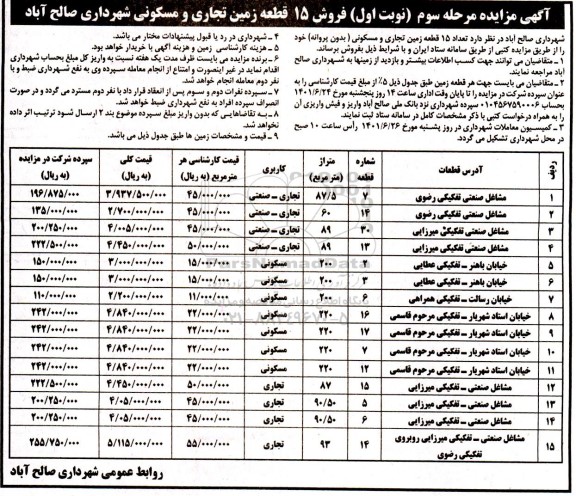 آگهی مزایده مرحله سوم (نوبت اول) فروش ۱۵ قطعه زمین تجاری و مسکونی شهرداری صالح آباد
شهرداری صالح آباد در نظر دارد تعداد ۱۵ قطعه زمین تجاری و مسکونی (بدون پروانه) خود
را از طریق مزایده کتبی از طریق سامانه ستاد ایران و با شرایط ذیل بفروش برساند.
۱ـ متقاضیان می توانند جهت کسب اطلاعات بیشتر و بازدید از زمینها به شهرداری صالح
آباد مراجعه نمایند.
۲ـ متقاضیان می بایست جهت هر قطعه زمین طبق جدول ذیل ۵٪ از مبلغ قیمت کارشناسی را به
عنوان سپرده شرکت در مزایده را تا پایان وقت اداری ساعت ۱۴ روز پنجشنبه مورخ ۱۴۰۱/۶/۲۴
بحساب ۰۱۰۴۵۶۷۵۹۰۰۰۶ سپرده شهرداری نزد بانک ملی صالح آباد واریز و فیش واریزی آن
را به همراه درخواست کتبی با ذکر مشخصات کامل در سامانه ستاد ثبت نمایند.
۳ـ کمیسیون معاملات شهرداری در روز شنبه مورخ ۱۴۰۱/۶/۲۶ رأس ساعت ۱۰ صبح
در محل شهرداری تشکیل می گردد.
۴ـ شهرداری در رد یا قبول پیشنهادات مختار می باشد.
۵ـ هزینه کارشناسی زمین و هزینه آگهی با خریدار خواهد بود.
۶ـ برنده مزایده می بایست ظرف مدت یک هفته نسبت به واریز کل مبلغ بحساب شهرداری
اقدام نماید در غیر اینصورت و امتناع از انجام معامله سپرده وی به نفع شهرداری ضبط و با
نفر دوم معامله انجام خواهد شد.
۷ـ سپرده نفرات دوم و سوم پس از انعقاد قرار داد با نفر دوم مسترد می گردد و در صورت
انصراف سپرده افراد به نفع شهرداری ضبط خواهد شد.
۸ـ به تقاضاهایی که بدون واریز مبلغ سپرده موضوع بند ۲ ارسال شود ترتیب اثر داده
نخواهد شد.
۹ـ قیمت و مشخصات زمین ها طبق جدول ذیل می باشد.
ردیف آدرس قطعات شماره قطعه متراژ (متر مربع) کاربری قیمت کارشناسی هر مترمربع (به ریال) قیمت کلی (به ریال) سپرده شرکت در مزایده (به ریال)
۱ مشاغل صنعتی تفکیکی رضوی ۷ ۸۷/۵ تجاری ـ صنعتی ۴۵/۰۰۰/۰۰۰ ۳/۹۳۷/۵۰۰/۰۰۰ ۱۹۶/۸۷۵/۰۰۰
۲ مشاغل صنعتی تفکیکی رضوی ۱۴ ۶۰ تجاری ـ صنعتی ۴۵/۰۰۰/۰۰۰ ۲/۷۰۰/۰۰۰/۰۰۰ ۱۳۵/۰۰۰/۰۰۰
۳ مشاغل صنعتی تفکیکی میرزایی ۳۰ ۸۹ تجاری ـ صنعتی ۴۵/۰۰۰/۰۰۰ ۴/۰۰۵/۰۰۰/۰۰۰ ۲۰۰/۲۵۰/۰۰۰
۴ مشاغل صنعتی تفکیکی میرزایی ۱۳ ۸۹ تجاری ـ صنعتی ۵۰/۰۰۰/۰۰۰ ۴/۴۵۰/۰۰۰/۰۰۰ ۲۲۲/۵۰۰/۰۰۰
۵ خیابان باهنر ـ تفکیکی عطایی ۲ ۲۰۰ مسکونی ۱۵/۰۰۰/۰۰۰ ۳/۰۰۰/۰۰۰/۰۰۰ ۱۵۰/۰۰۰/۰۰۰
۶ خیابان باهنر ـ تفکیکی عطایی ۳ ۲۰۰ مسکونی ۱۵/۰۰۰/۰۰۰ ۳/۰۰۰/۰۰۰/۰۰۰ ۱۵۰/۰۰۰/۰۰۰
۷ خیابان رسالت ـ تفکیکی همراهی ۶ ۲۰۰ مسکونی ۱۱/۰۰۰/۰۰۰ ۲/۲۰۰/۰۰۰/۰۰۰ ۱۱۰/۰۰۰/۰۰۰
۸ خیابان استاد شهریار ـ تفکیکی مرحوم قاسمی ۱۶ ۲۲۰ مسکونی ۲۲/۰۰۰/۰۰۰ ۴/۸۴۰/۰۰۰/۰۰۰ ۲۴۲/۰۰۰/۰۰۰
۹ خیابان استاد شهریار ـ تفکیکی مرحوم قاسمی ۱۷ ۲۲۰ مسکونی ۲۲/۰۰۰/۰۰۰ ۴/۸۴۰/۰۰۰/۰۰۰ ۲۴۲/۰۰۰/۰۰۰
۱۰ خیابان استاد شهریار ـ تفکیکی مرحوم قاسمی ۷ ۲۲۰ مسکونی ۲۲/۰۰۰/۰۰۰ ۴/۸۴۰/۰۰۰/۰۰۰ ۲۴۲/۰۰۰/۰۰۰
۱۱ خیابان استاد شهریار ـ تفکیکی مرحوم قاسمی ۱۲ ۲۲۰ مسکونی ۲۲/۰۰۰/۰۰۰ ۴/۸۴۰/۰۰۰/۰۰۰ ۲۴۲/۰۰۰/۰۰۰
۱۲ مشاغل صنعتی ـ تفکیکی میرزایی ۱۵ ۸۷ تجاری ۵۰/۰۰۰/۰۰۰ ۴/۴۵۰/۰۰۰/۰۰۰ ۲۲۲/۵۰۰/۰۰۰
۱۳ مشاغل صنعتی ـ تفکیکی میرزایی ۵ ۹۰/۵۰ تجاری ۴۵/۰۰۰/۰۰۰ ۴/۰۵/۰۰۰/۰۰۰ ۲۰۰/۲۵۰/۰۰۰
۱۴ مشاغل صنعتی ـ تفکیکی میرزایی ۶ ۹۰/۵۰ تجاری ۴۵/۰۰۰/۰۰۰ ۴/۰۵/۰۰۰/۰۰۰ ۲۰۰/۲۵۰/۰۰۰
۱۵ مشاغل صنعتی ـ تفکیکی میرزایی روبروی تفکیکی رضوی ۱۴ ۹۳ تجاری ۵۵/۰۰۰/۰۰۰ ۵/۱۱۵/۰۰۰/۰۰۰ ۲۵۵/۷۵۰/۰۰۰
روابط عمومی شهرداری صالح آباد